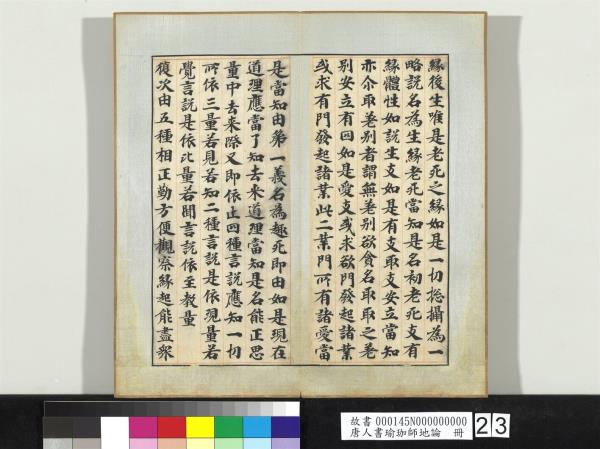 緣後生唯是老死之緣如是一切捴攝為一
略說名為生緣老死當知是名初老死支有
緣體性如說生支如是有支取支安立當知
亦尒取差别者謂無差别欲貪名取取之差
别安立有四如是愛支或求欲門發起諸業
或求有門發起諸業此二業門所有諸愛當
是當知由第一義名為趣死即由如是現在
道理應當了知去來道理當知是名能正思
量中去來際又即依止四種言說應知一切
所依三量若見若知二種言說是依現量若
覺言說是依比量若聞言說依至教量
復次由五種相正勤方便觀察緣起能盡衆
故書 000145N000000000
唐人書瑜珈師地論 冊
23